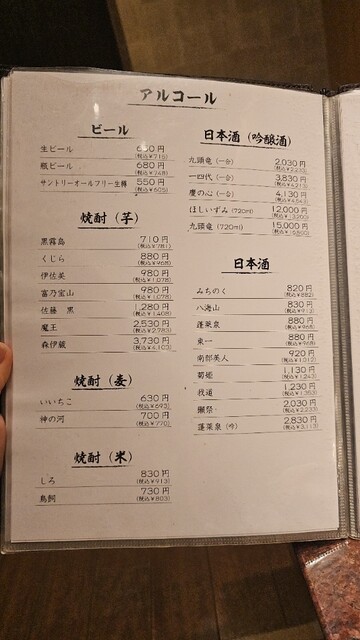 アルコール
ビール
生ビール 650円
(税込¥715)
瓶ビール 680円
(税込¥748)
サントリーオールフリー生樽 550円
(税込¥605)
焼酎（芋）
黒霧島 710円
(税込¥781)
くじら 880円
(税込¥968)
伊佐美 980円
(税込¥1,078)
富乃宝山 980円
(税込¥1,078)
佐藤 黒 1,280円
(税込¥1,408)
魔王 2,530円
(税込¥2,783)
森伊蔵 3,730円
(税込¥4,103)
焼酎（麦）
いいちこ 630円
(税込¥693)
神の河 700円
(税込¥770)
焼酎（米）
しろ 830円
(税込¥913)
鳥飼 730円
(税込¥803)
日本酒（吟醸酒）
九頭竜（一合） 2,030円
(税込¥2,233)
一四代（一合） 3,830円
(税込¥4,213)
慶の心（一合） 4,130円
(税込¥4,543)
ほしいずみ（720ml） 12,000円
(税込¥13,200)
九頭竜（720ml） 15,000円
(税込¥16,500)
日本酒
みちのく 820円
(税込¥882)
八海山 830円
(税込¥913)
蓬莱泉 880円
(税込¥968)
東一 880円
(税込¥968)
南部美人 920円
(税込¥1,012)
菊姫 1,130円
(税込¥1,243)
1,230円
(税込¥1,353)
獺祭 2,030円
(税込¥2,233)
蓬莱泉（吟） 2,830円
(税込¥3,113)